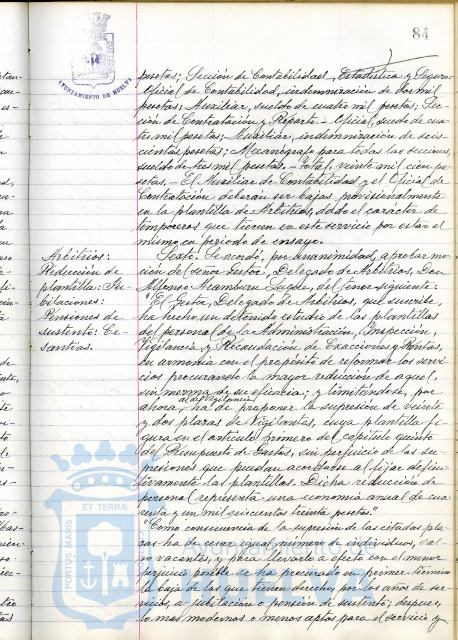 84
AYUNTAMIENTO DE HUELVA
pesetas; Sección de Contabilidad, Estadística y Seguro-
Oficial de Contabilidad, indemnización de dos mil
pesetas; Auxiliar, sueldo de cuatro mil pesetas; Sec-
ción de Contratación y Reparto - Oficial, sueldo de cua-
tro mil pesetas; Auxiliar, indemnización de seis-
cientas pesetas; Mecanógrafo para todas las secciones,
sueldo de tres mil pesetas. - Total, veinte mil cien pe-
setas. - El Auxiliar de Contabilidad y el Oficial de
Contratación deberán ser bajas provisionalmente
en la plantilla de Arbitrios, dado el carácter de
temporeros que tienen en este servicio por estar el
mismo en periodo de ensayo.
Arbitrios:
Reducción de
plantilla: Ju-
bilaciones:
Pensiones de
sustento: Ce-
santías.
Sexto. Se acordó, por unanimidad, aprobar mo-
ción del señor Gestor, Delegado de Arbitrios, Don
Alfonso Aramburu, del tenor siguiente:
"El Gestor, Delegado de Arbitrios, que suscribe,
ha hecho un detenido estudio de las plantillas
del personal de la Administración, Inspección
Vigilancia y Recaudación de Exacciones y Rentas,
en armonía con el propósito de reformar los servi-
cios procurando la mayor reducción de aquel,
sin merma de su eficacia; y limitándose, por
al de Vigilancia,
ahora, ha de proponer la supresión de veinte
y dos plazas de Vigilantes, cuya plantilla fi-
gura en el artículo primero del capítulo quinto
del Presupuesto de Gastos, sin perjuicio de las su-
presiones que puedan acordarse al fijar defini-
tivamente las plantillas. Dicha reducción de
personal representa una economía anual de cua-
renta y un mil quinientas treinta pesetas."
"Como consecuencia de la supresión de las citadas pla-
zas ha de cesar igual número de individuos, sal-
vo vacantes, y para llevarlo a efecto con el menor
perjuicio posible se ha procurado en primer término
la baja de los que tienen derecho, por los años de ser-
vicio, a jubilación o pensión de sustento; después,
lo mas modernos o menos aptos para el servicio y
PORTUS MARIS ET TERRÆ
Ayuntamiento de